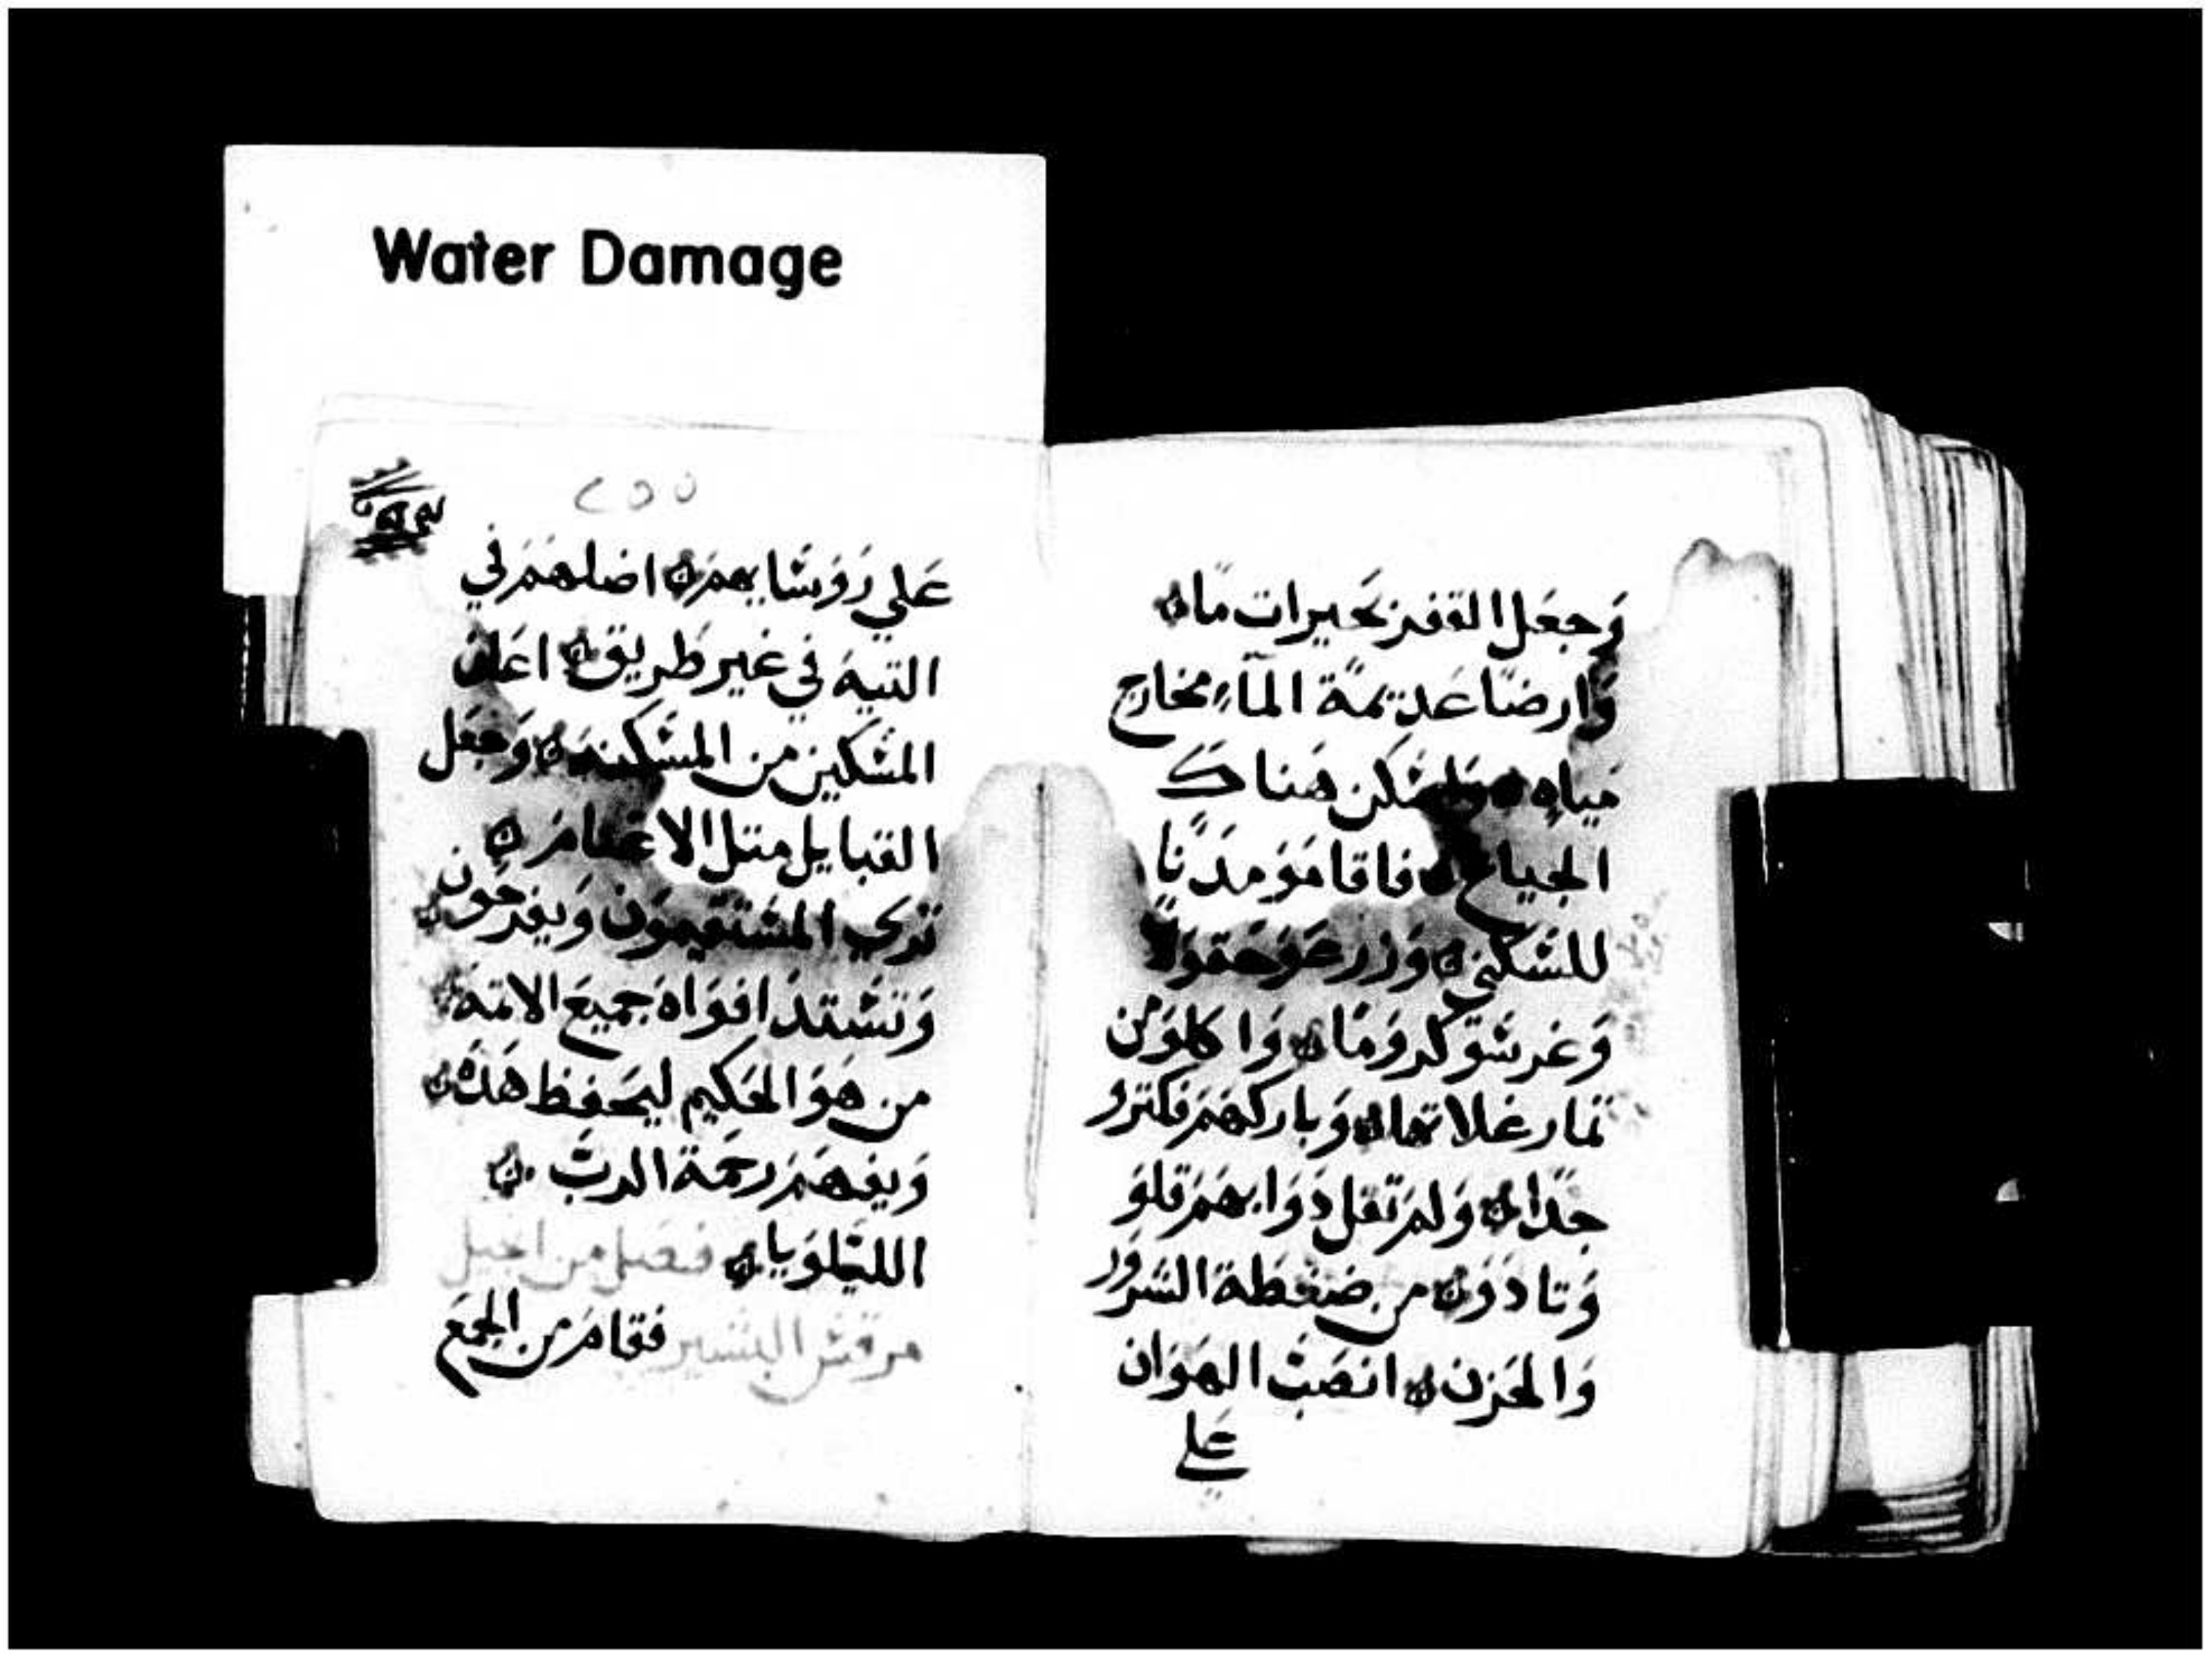 Water Damage
وَجعَل القفر بحيرات مآ
وَارضًا عَديمَة المآء مخارج
مياه وَليسَكن هَناك
الجياع فاقامَوَ مدَنًا
للسَكني وَزرعَوَ حقوَلًا
وَغرسَوَ كروَمًا وَاكلوَ من
تمار غلاتها وَباركهَم فكترو
جدًا وَلم تَقل دَوَابهَم قلوَ
وَتادوَ من ضغطة السَروَر
وَالحَزن انصَبَ الهَوَان
عَلي
٢٥٥
عَلي روَسَايهم اضلهم في
التيه في غير طريق اعَان
المسَكين من المسَكنه وَجعَل
القبايل متل الاغنام
تري المسَتقيموَن وَيفرحَوَن
وَتسَتد افوَاه جميعَ الاتمة
من هوَ الحَكيم ليحَفظ هَذه
وَيفهَم رحَمة الربَ
الليَلوَيا فصَل من انجيل
مرقسَ البشير فقام من الجمَع